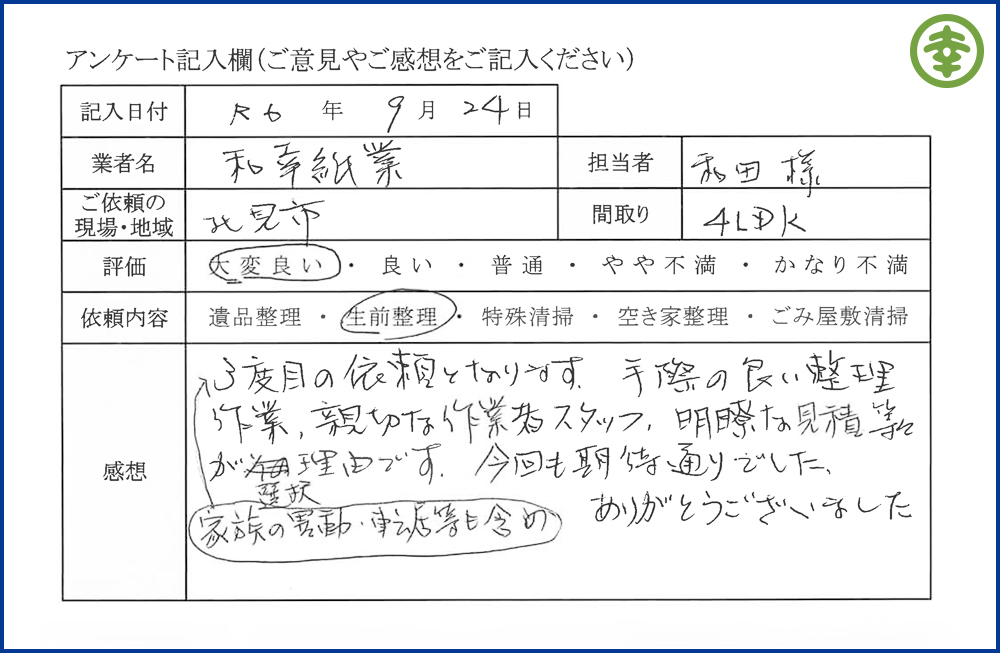 幸
アンケート記入欄(ご意見やご感想をご記入ください)
記入日付 R6 年 9月 24日
業者名 和幸紙業 担当者 和田 様
ご依頼の現場・地域 北見市 間取り 4LDK
評価 大変良い・良い・普通・やや不満・かなり不満
依頼内容 遺品整理・生前整理・特殊清掃・空き家整理・ごみ屋敷清掃
感想
3度目の依頼となります。手際の良い整理
作業、親切な作業者スタッフ、明瞭な見積等々
が選択理由です。今回も期待通りでした、
ありがとうございました
家族の異動・転居等も含め